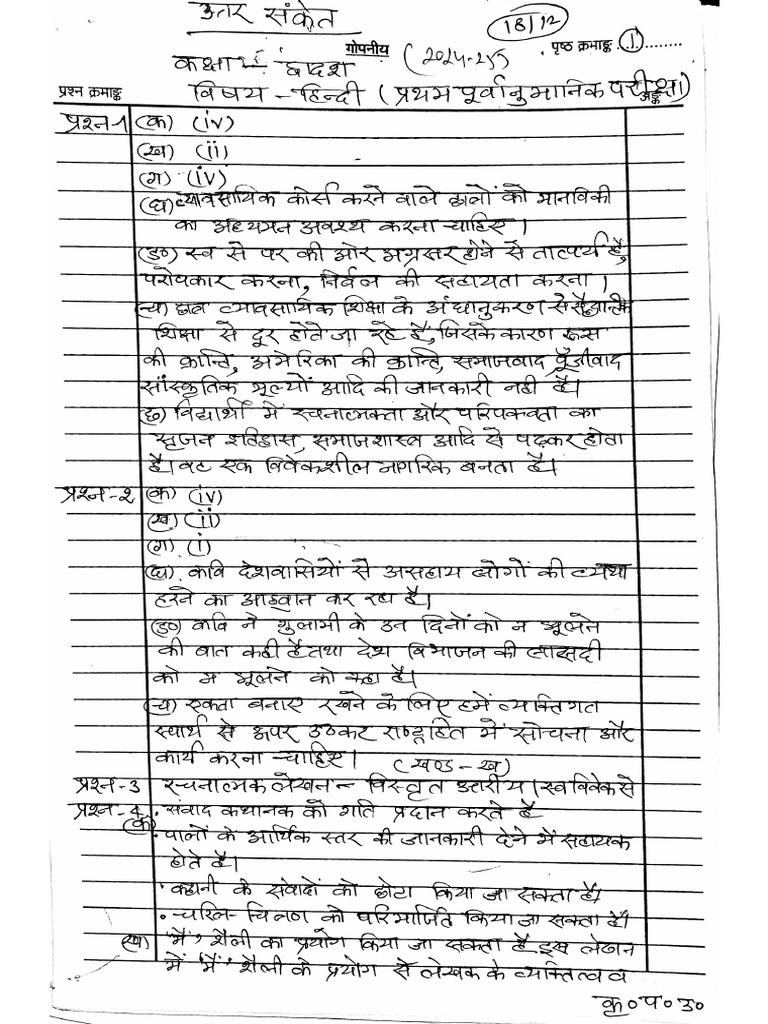 उत्तर संकेत
18/12
गोपनीय
पृष्ठ क्रमाङ्क .1.........
कक्षा - द्वादश (2024-25)
प्रश्न क्रमाङ्क विषय - हिन्दी (प्रथम पूर्वानुमानिक परीक्षा) अङ्क
प्रश्न-1 (क) (iv)
(ख) (ii)
(ग) (iv)
(घ) व्यावसायिक कोर्स करने वाले छात्रों को मानविकी
का अध्ययन अवश्य करना चाहिए।
(ङ०) स्व से पर की ओर अग्रसर होने से तात्पर्य है,
परोपकार करना, निर्बल की सहायता करना।
(च) छात्र व्यावसायिक शिक्षा के अंधानुकरण से सैद्धान्तिक
शिक्षा से दूर होते जा रहे है, जिसके कारण रूस
की क्रान्ति, अमेरिका की क्रान्ति, समाजवाद पूँजीवाद
सांस्कृतिक मूल्यों आदि की जानकारी नही है।
(छ) विद्यार्थी में रचनात्मकता और परिपक्वता का
सृजन इतिहास, समाजशास्त्र आदि से पढ़कर होता
है। वह एक विवेकशील नागरिक बनता है।
प्रश्न-2 (क) (iv)
(ख) (ii)
(ग) (i)
(घ) कवि देशवासियों से असहाय लोगों की व्यथा
हरने का आह्वान कर रहा है।
(ङ०) कवि ने गुलामी के उन दिनों को न भूलने
की बात कही है तथा देश विभाजन की त्रासदी
को न भूलने को कहा है।
(च) एकता बनाए रखने के लिए हमें व्यक्तिगत
स्वार्थ से ऊपर उठकर राष्ट्रहित में सोचना और
कार्य करना चाहिए। (खण्ड - ख)
प्रश्न-3 रचनात्मक लेखन - विस्तृत उत्तरीय। स्व विवेक से
प्रश्न-4 • संवाद कथानक को गति प्रदान करते है
(क) • पात्रों के आर्थिक स्तर की जानकारी देने में सहायक
होते है।
• कहानी के संवादों को छोटा किया जा सकता है।
• चरित्र-चित्रण को परिमार्जित किया जा सकता है।
(ख) 'मैं' शैली का प्रयोग किया जा सकता है इस लेखन
में 'मैं' शैली के प्रयोग से लेखक के व्यक्तित्व व
कृ०प०उ०